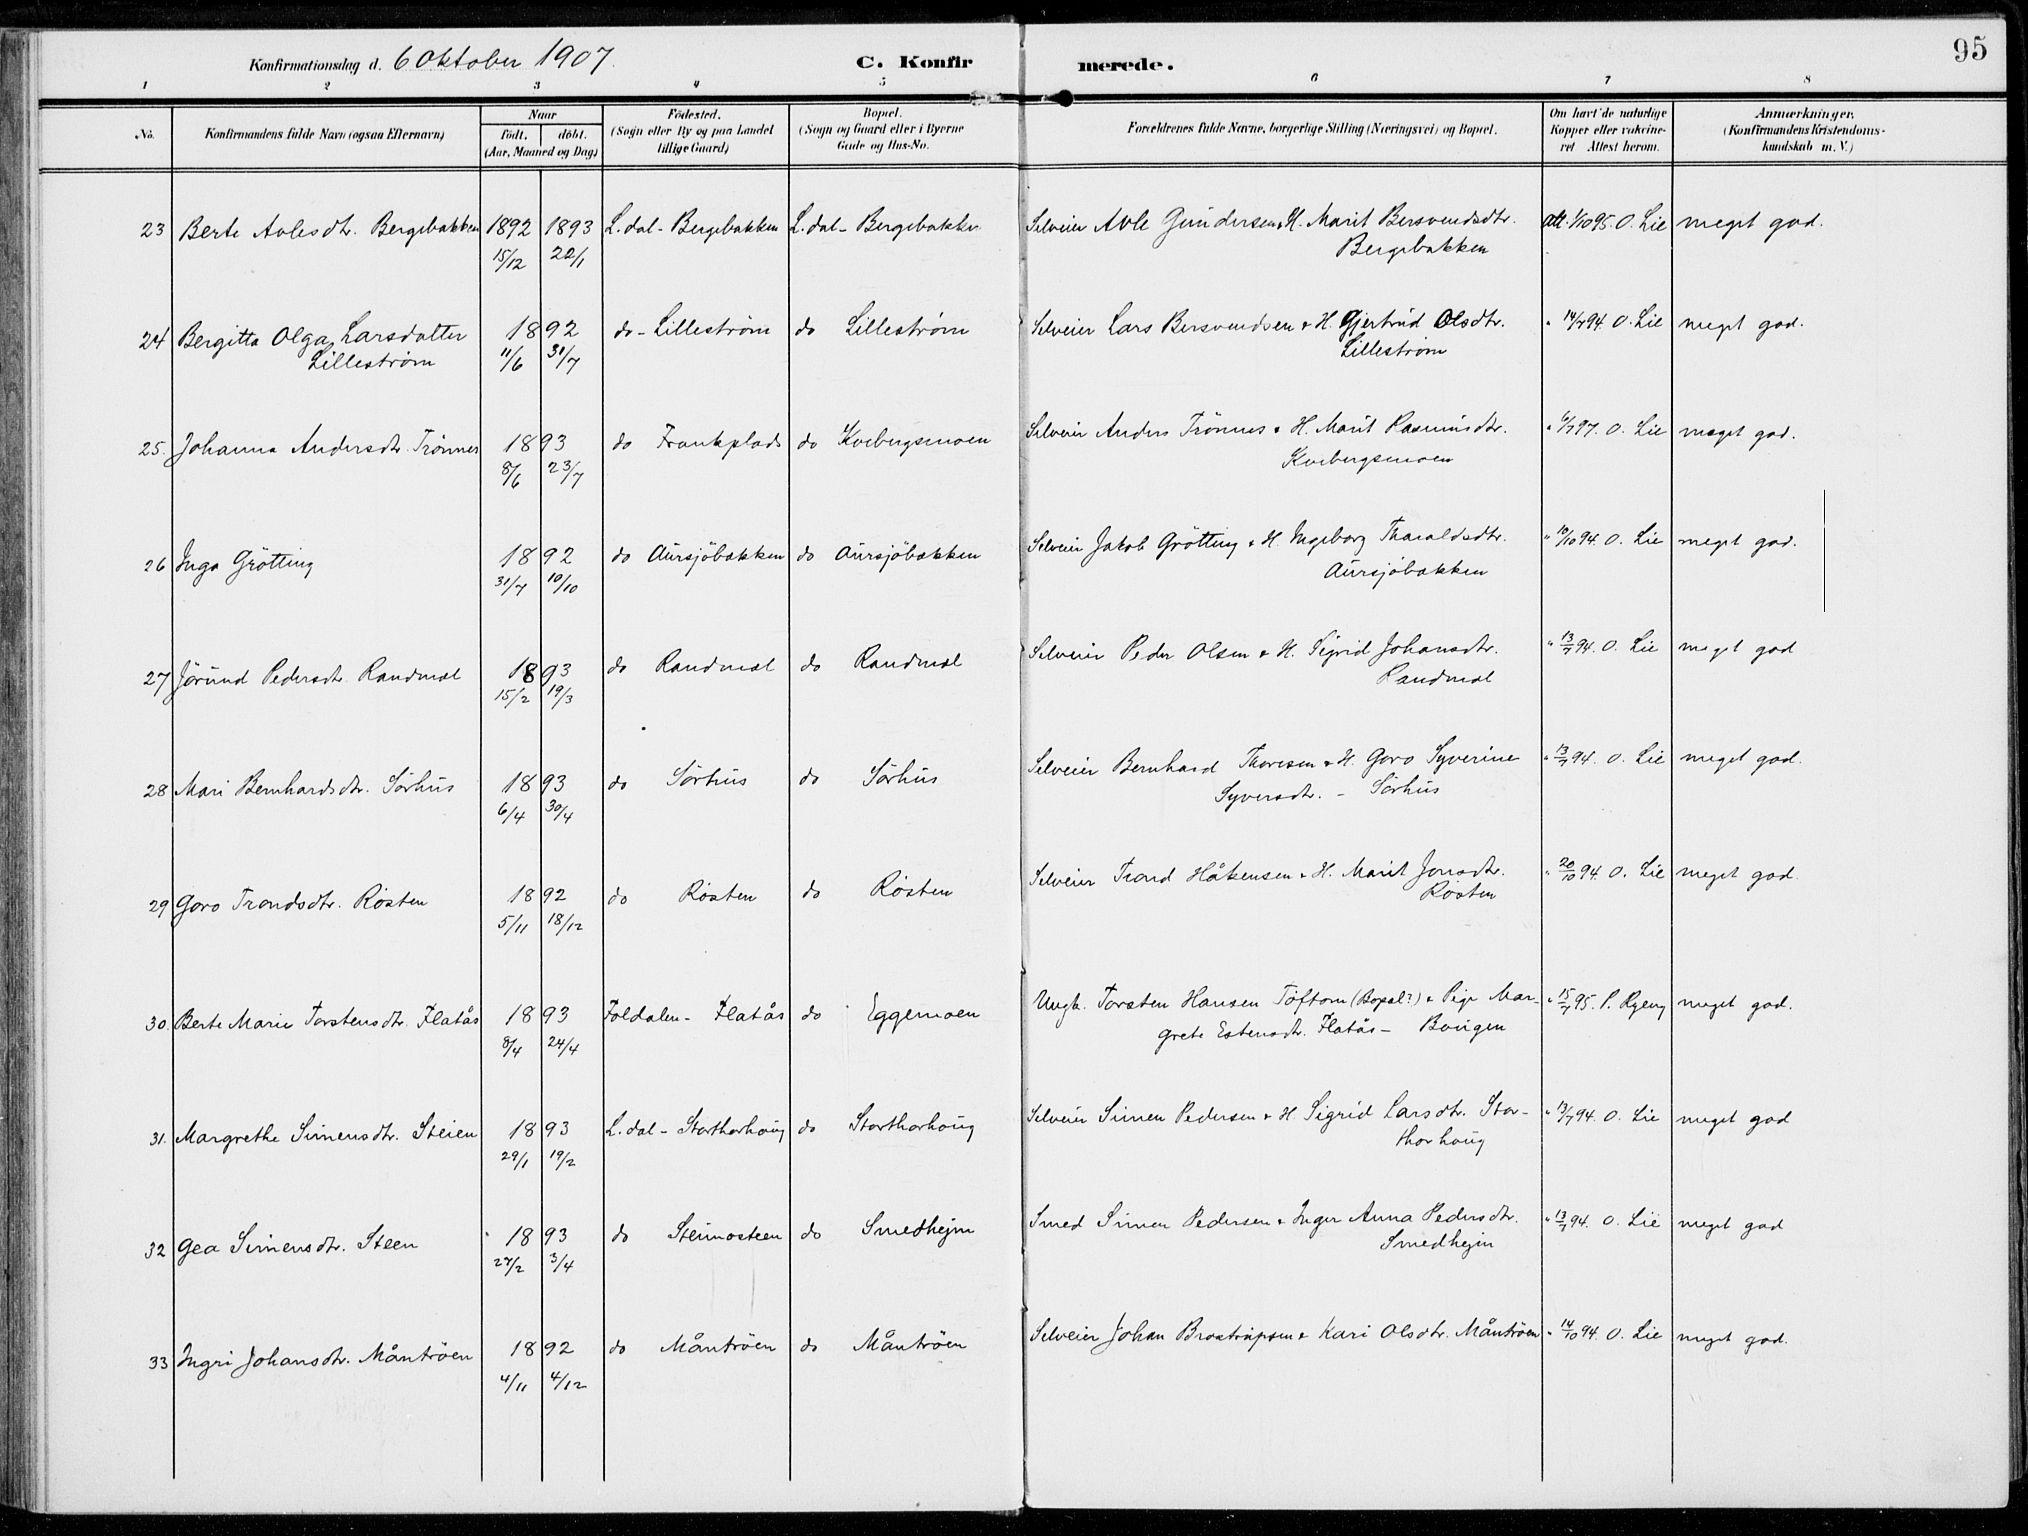 Konfirmationsdag d. 6 Oktober 1907.
C. Konfirmerede.
95
1 2 3 4 5 6 7 8
No.
Konfirmandens fulde Navn (ogsaa Efternavn)
Naar
født. døbt.
(Aar, Maaned og Dag)
Fødested.
(Sogn eller By og paa Landet
tillige Gaard)
Bopæl.
(Sogn og Gaard eller i Byerne
Gade og Hus-No.
Forældrenes fulde Navne, borgerlige Stilling (Næringsvei) og Bopæl.
Om havt de naturlige
Kopper eller vakcine-
ret Attest herom.
Anmærkninger.
(Konfirmandens Kristendoms-
kundskab m. V.)
23 Berte Avlesdtr. Bergebakken 1892 1893 L.dal - Bergebakken L.dal - Bergebakken Selveier Avle Gundersen & H. Marit Bersvendsdtr. att. 1/10 95. O. Lie meget god.
15/12 22/1 Bergebakken
24 Bergitta Olga Larsdatter 1892 do - Lilleström do Lilleström Selveier Lars Bersvendsen & H. Gjertrud Olsdtr. " 14/7 94. O. Lie meget god.
Lilleström 11/6 31/7 Lilleström
25. Johanna Andersdtr. Trönnes 1893 do Frankplads do Kvebergsmoen Selveier Anders Trönnes & H. Marit Rasmusdtr. " 6/7 97. O. Lie meget god.
8/6 23/7 Kvebergsmoen
26 Inga Grötting 1892 do Aursjöbakken do Aursjöbakken Selveier Jakob Grötting & H. Ingeborg Tharaldsdtr. " 10/10 94. O. Lie meget god.
31/7 10/10 Aursjöbakken
27 Jörund Pedersdtr. Randmæl 1893 do Randmæl do Randmæl Selveier Peder Olsen & H. Sigrid Johansdtr. " 13/7 94. O. Lie meget god
15/2 19/3 Randmæl
28 Mari Bernhardsdtr. Sörhus 1893 do Sörhus do Sörhus Selveier Bernhard Thoresen & H. Goro Syverine " 13/7 94. O. Lie meget god.
6/4 30/4 Syversdtr. - Sörhus
29 Goro Trondsdtr. Rösten 1892 do Rösten do Rösten Selveier Trond Håkensen & H. Marit Jonsdtr. " 20/10 94 O. Lie meget god.
5/11 18/12 Rösten
30. Berte Marie Torstensdtr. Flatås 1893 Foldalen - Flatås do Eggemoen Ungk. Torsten Hansen Töftom (Bopæl?) & Pige Mar- " 15/7 95. P. Ryeng meget god.
8/4 24/4 grete Estensdtr. Flatås - Bougen
31. Margrethe Simensdtr. Steien 1893 L.dal - Storthorhoug do Storthorhoug Selveier Simen Pedersen & H Sigrid Larsdtr. Stor- " 13/7 94. O. Lie meget god
29/1 19/2 thorhoug
32 Gea Simensdtr. Steen 1893 do Steimosteen do Smedhejm Smed Simen Pedersen & Inger Anna Pedersdtr. " 13/7 94. O. Lie meget god
27/2 3/4 Smedhejm
33 Ingri Johansdtr. Måntröen 1892 do Måntröen do Måntröen Selveier Johan Brostrupsen & Kari Olsdtr. Måntröen " 14/10 94. O. Lie meget god.
4/11 4/12